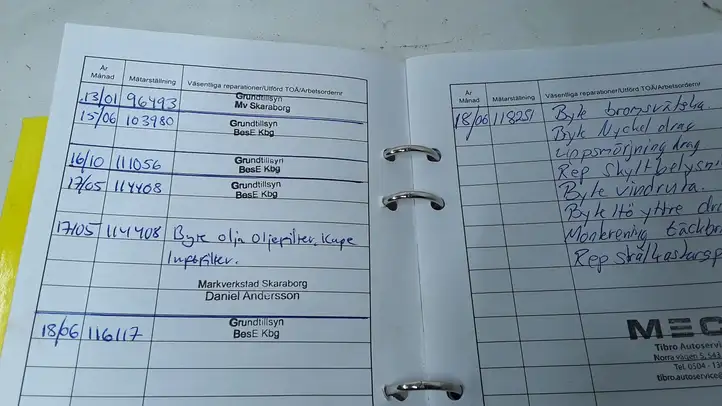 År
Månad
Mätarställning
Väsentliga reparationer/Utförd TOÅ/Arbetsordernr
13/01 96493 Grundtillsyn
Mv Skaraborg
15/06 103980 Grundtillsyn
BesE Kbg
16/10 111056 Grundtillsyn
BesE Kbg
17/05 114408 Grundtillsyn
BesE Kbg
17/05 114408 Byte olja Oljefilter. Kupe
luftfilter.
Markverkstad Skaraborg
Daniel Andersson
18/06 116117 Grundtillsyn
BesE Kbg
År
Månad
Mätarställning
Väsentliga reparationer/Utförd TOÅ/Arbetsordernr
18/06 118251 Byte bromsvätska
Byte Nyckel drag
Uppsmörjning drag
Rep Skyltbelysn
Byte vindruta.
Byte Hö yttre dra
Montering täckbr
Rep Strålkastarsp
MEC
Tibro Autoservic
Norra vägen 5, 543
Tel. 0504 - 150
tibro.autoservice@